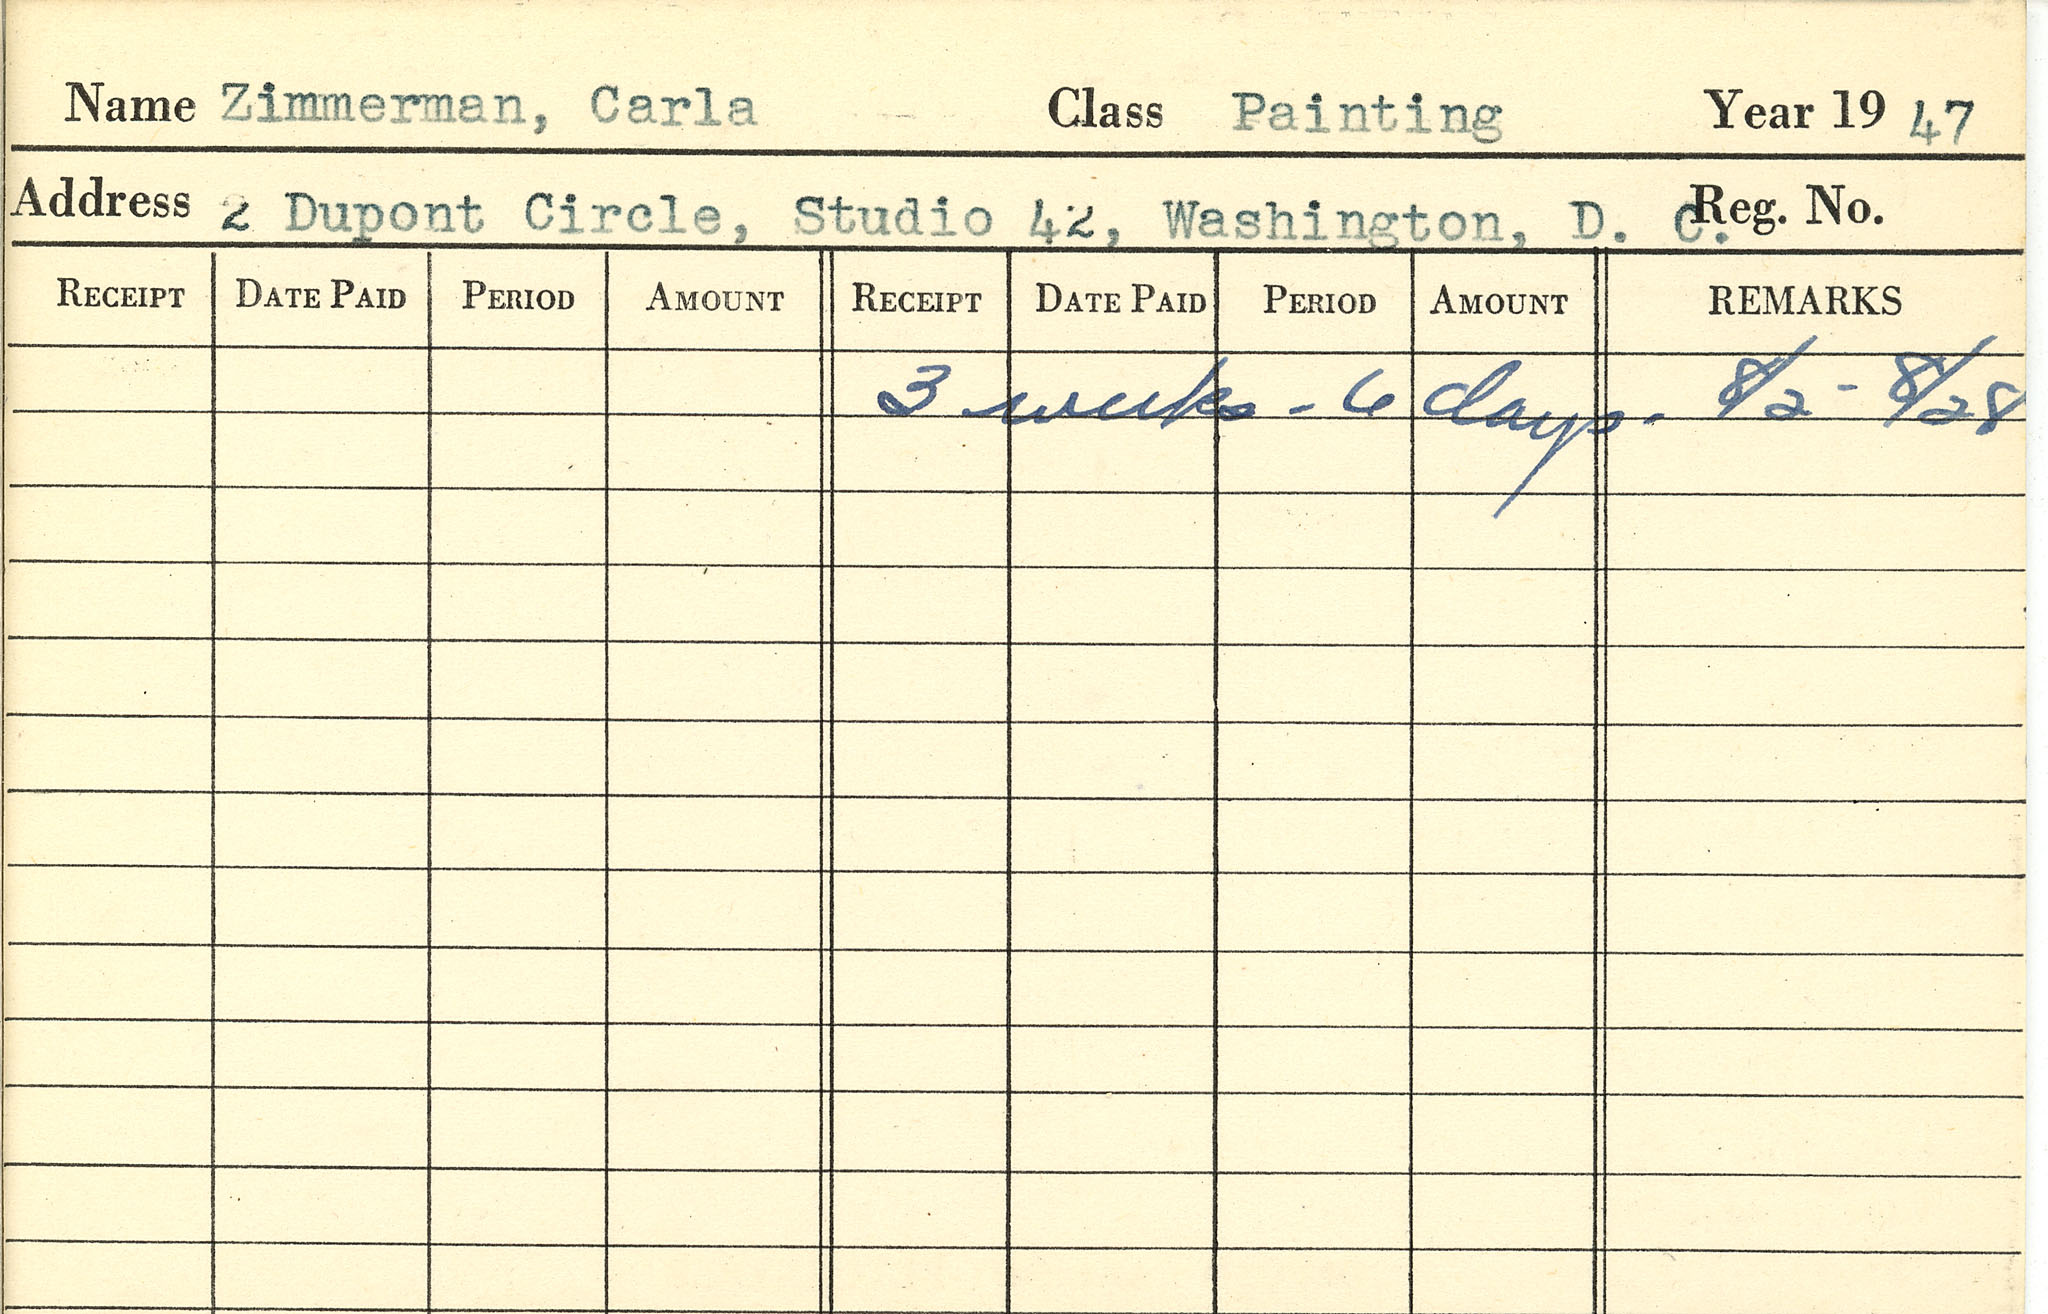 Name Zimmerman, Carla Class Painting Year 19 47
Address 2 Dupont Circle, Studio 42, Washington, D. C. Reg. No.
RECEIPT DATE PAID PERIOD AMOUNT RECEIPT DATE PAID PERIOD AMOUNT REMARKS
3 weeks - 6 days. 8/2 - 8/28